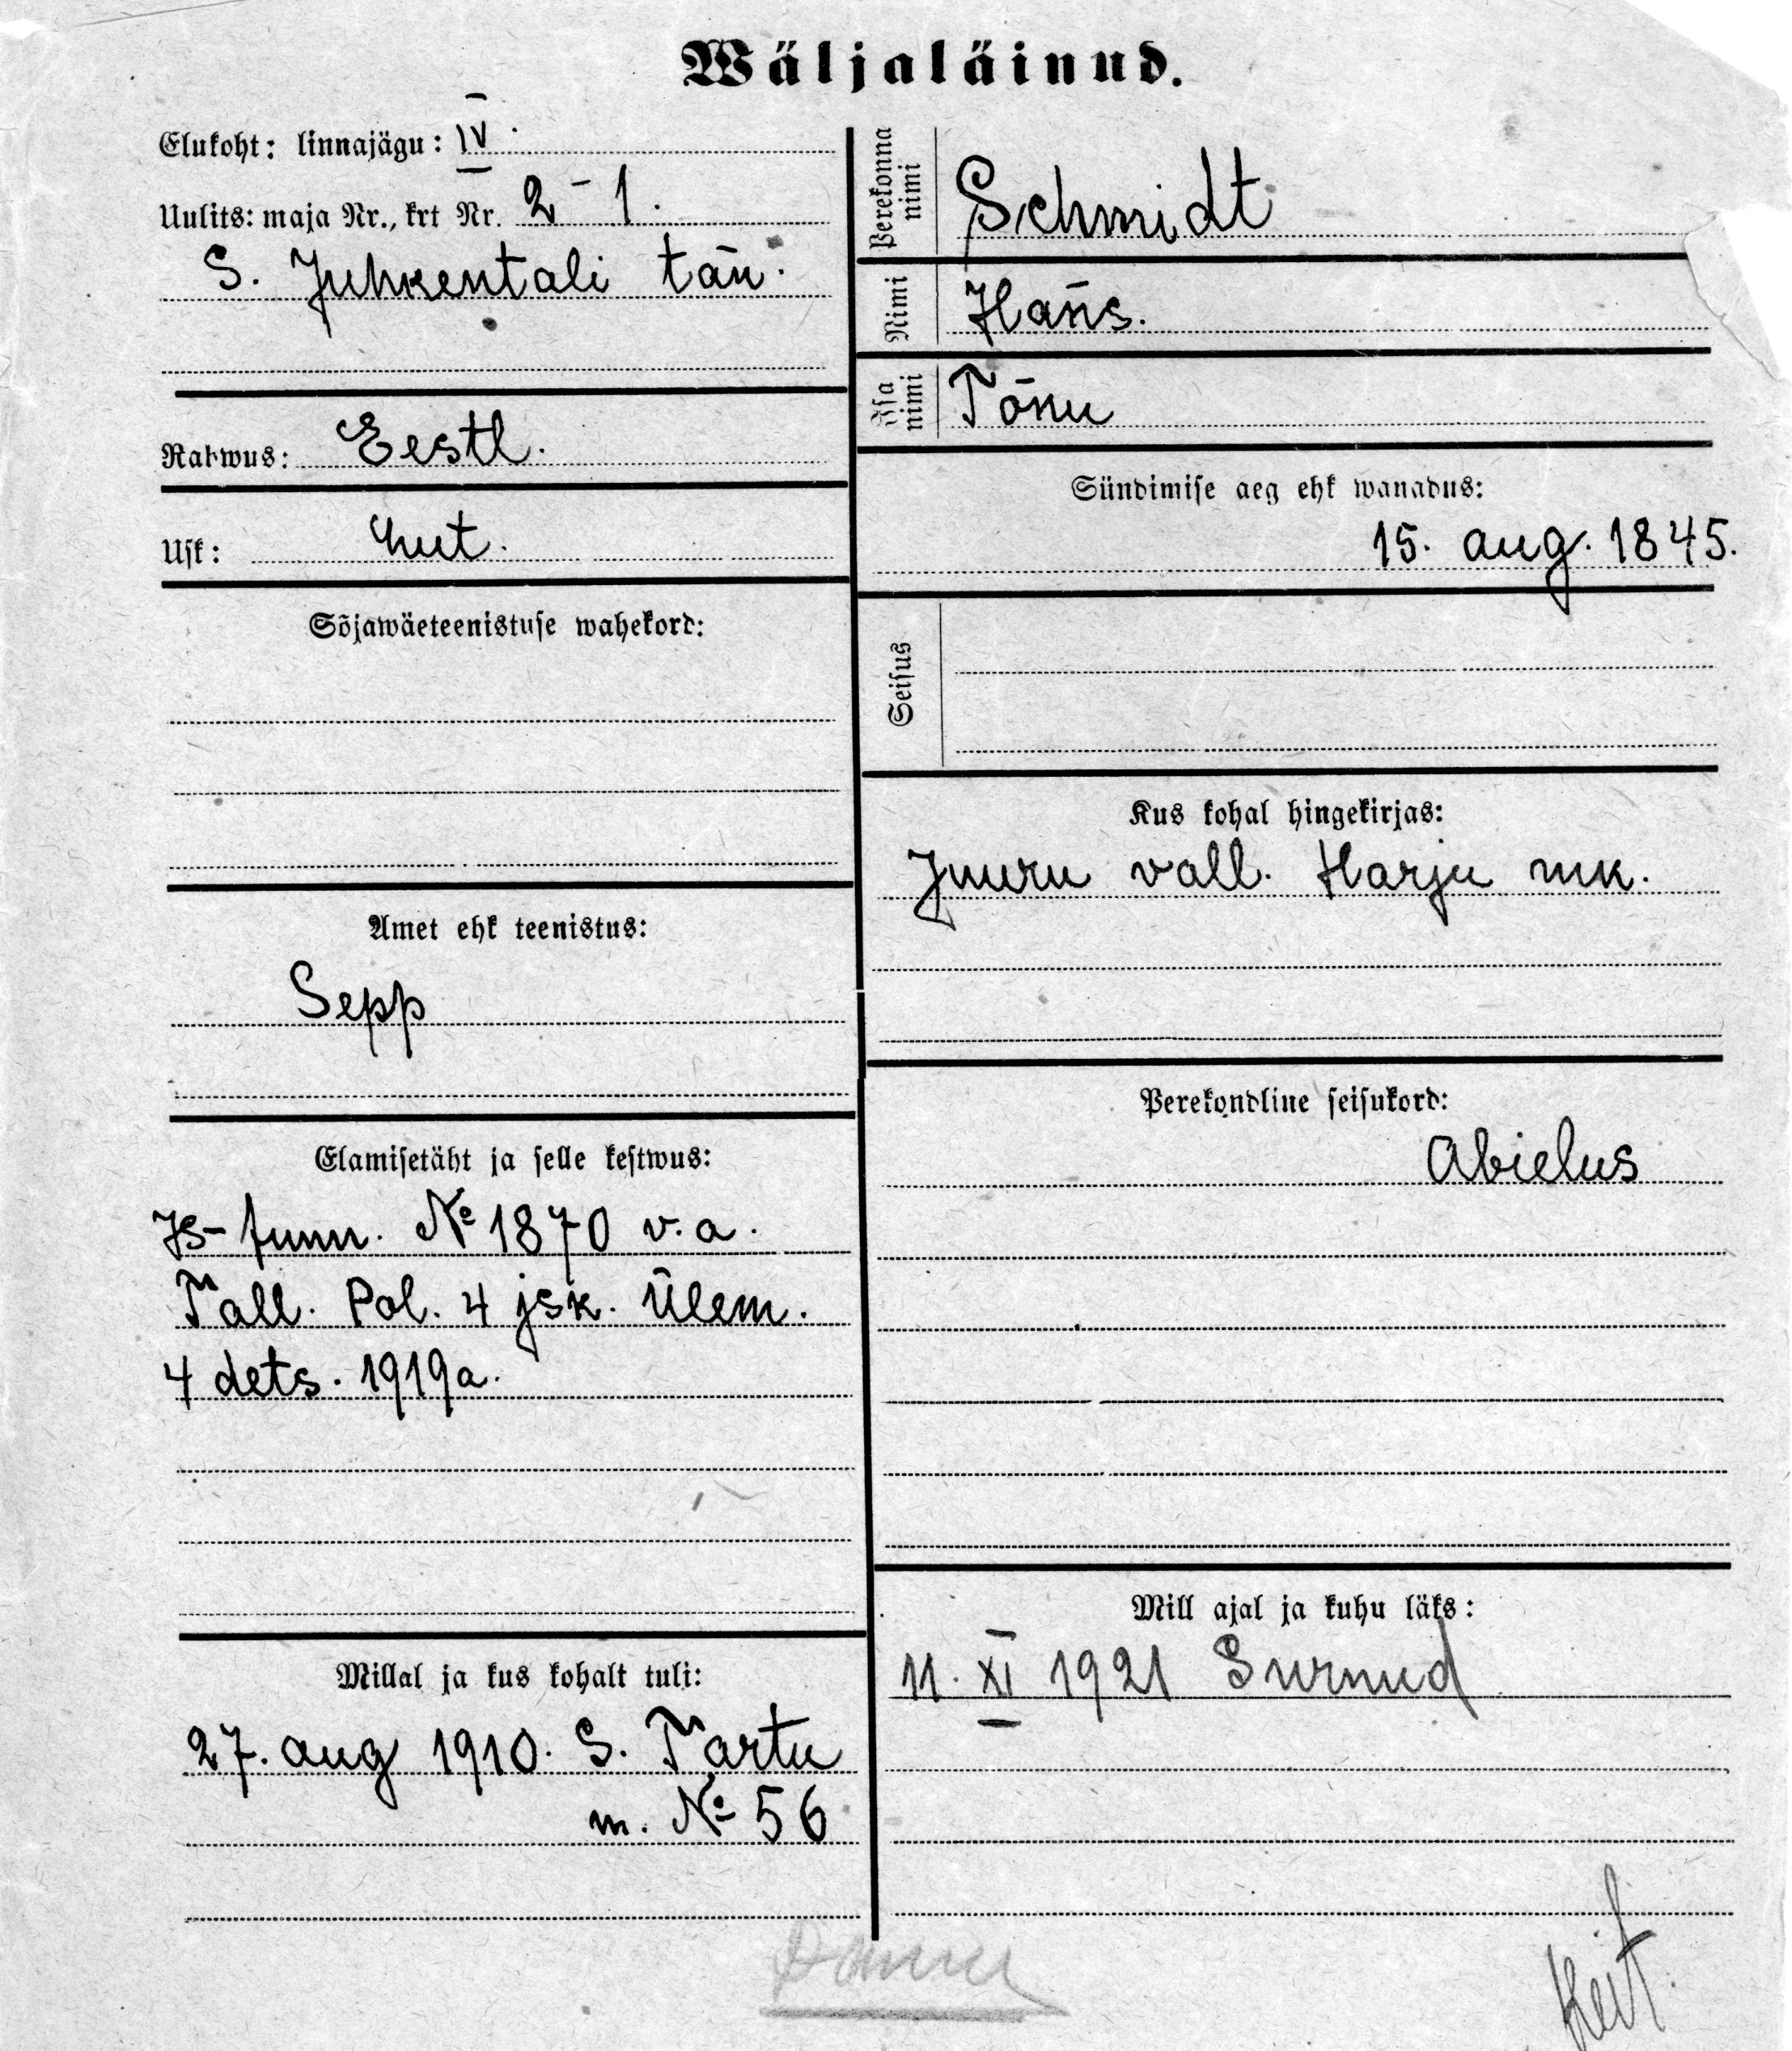 Wäljaläinud.
Elukoht: linnajägu: IV.
Uulits: maja Nr., krt Nr. 2 – 1.
S. Juhkentali tän.
Rahwus: Eestl.
Usk: Lut.
Sõjawäeteenistuse wahekord:
Amet ehk teenistus:
Sepp
Elamisetäht ja selle kestwus:
Is- tunn. № 1870 v. a.
Tall. Pol. 4 jsk. Ülem.
4 dets. 1919a.
Millal ja kus kohalt tuli:
27. aug 1910. S. Tartu
m. № 56
Perekonna nimi Schmidt
Nimi Hans.
Isa nimi Tõnu
Sündimise aeg ehk wanadus:
15. aug. 1845.
Seisus
Kus kohal hingekirjas:
Juuru vall. Harju mk.
Perekondline seisukord:
Abielus
Mill ajal ja kuhu läks:
11. XI 1921 Surnud